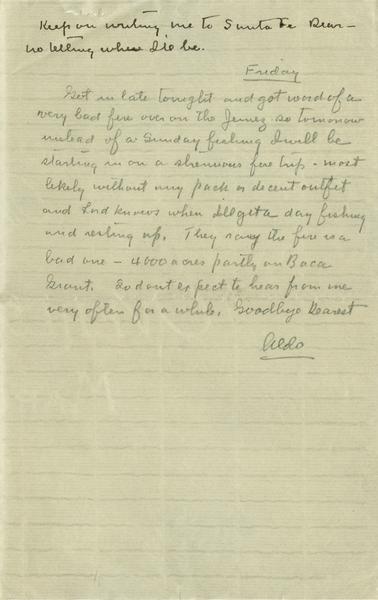 Keep on writing me to Santa Fe Dear —
no telling where I'll be.
Friday
Got in late tonight and got word of a
very bad fire over on the Jemez so tomorrow
instead of a Sunday fishing I will be
starting in on a strenuous fire trip - most
likely without my pack or decent outfit
and Lord knows when I'll get a day fishing
and resting up. They say the fire is a
bad one — 4000 acres partly on Baca
Grant. So dont expect to hear from me
very often for a while. Goodbye Dearest
Aldo